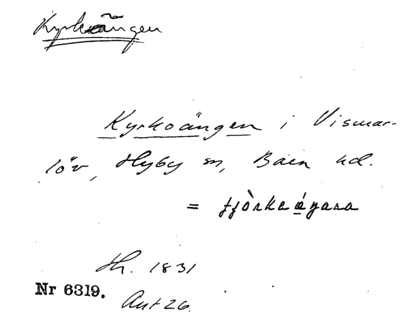 Kyrkoängen
Kyrkoängen i Vismar-
löv, Hyby sn, Bara hd.
=
Sk. 1831
Nr 6319.
Ant 26.